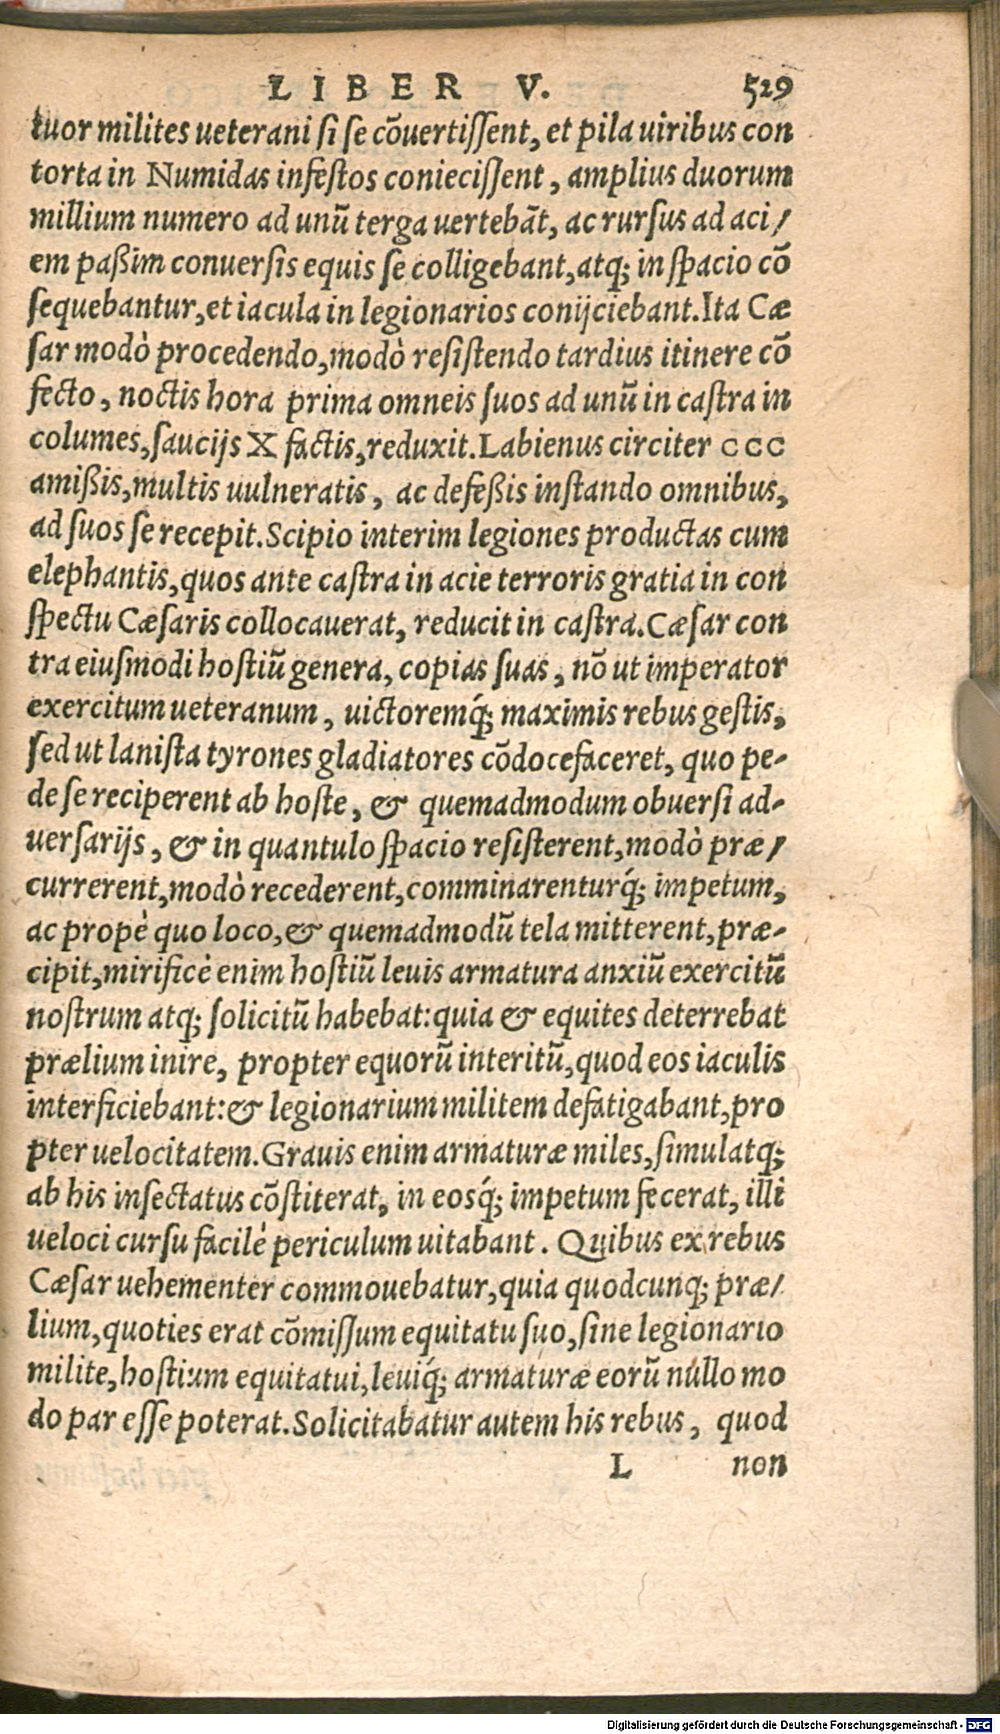 LIBER V. 529
tuor milites ueterani si se cõuertiſſent, et pila uiribus con
torta in Numidas infeſtos conieciſſent, amplius duorum
millium numero ad unũ terga uertebãt, ac rurſus ad aci/
em paßim conuerſis equis ſe colligebant, atq; in ſpacio cõ
ſequebantur, et iacula in legionarios conijciebant. Ita Cæ
ſar modò procedendo, modò reſiſtendo tardius itinere cõ
fecto, noctis hora prima omneis ſuos ad unũ in caſtra in
columes, ſaucijs X factis, reduxit. Labienus circiter CCC
amißis, multis uulneratis, ac defeßis inſtando omnibus,
ad ſuos ſe recepit. Scipio interim legiones productas cum
elephantis, quos ante caſtra in acie terroris gratia in con
ſpectu Cæſaris collocauerat, reducit in caſtra. Cæſar con
tra eiuſmodi hoſtiũ genera, copias ſuas, nõ ut imperator
exercitum ueteranum, uictoremq́; maximis rebus geſtis,
ſed ut laniſta tyrones gladiatores cõdocefaceret, quo pe-
de ſe reciperent ab hoſte, & quemadmodum obuerſi ad-
uerſarijs, & in quantulo ſpacio reſiſterent, modò præ/
currerent, modò recederent, comminarenturq́; impetum,
ac propè quo loco, & quemadmodũ tela mitterent, præ-
cipit, mirificè enim hoſtiũ leuis armatura anxiũ exercitũ
noſtrum atq; ſolicitũ habebat: quia & equites deterrebat
prælium inire, propter equorũ interitũ, quod eos iaculis
interficiebant: & legionarium militem defatigabant, pro
pter uelocitatem. Grauis enim armaturæ miles, ſimulatq;
ab his inſectatus cõſtiterat, in eosq́; impetum fecerat, illi
ueloci curſu facilè periculum uitabant. Quibus ex rebus
Cæſar uehementer commouebatur, quia quodcunq; præ/
lium, quoties erat cõmiſſum equitatu ſuo, ſine legionario
milite, hoſtium equitatui, leuiq́; armaturæ eorũ nullo mo
do par eſſe poterat. Solicitabatur autem his rebus, quod
L non
Digitalisierung gefördert durch die Deutsche Forschungsgemeinschaft - DFG